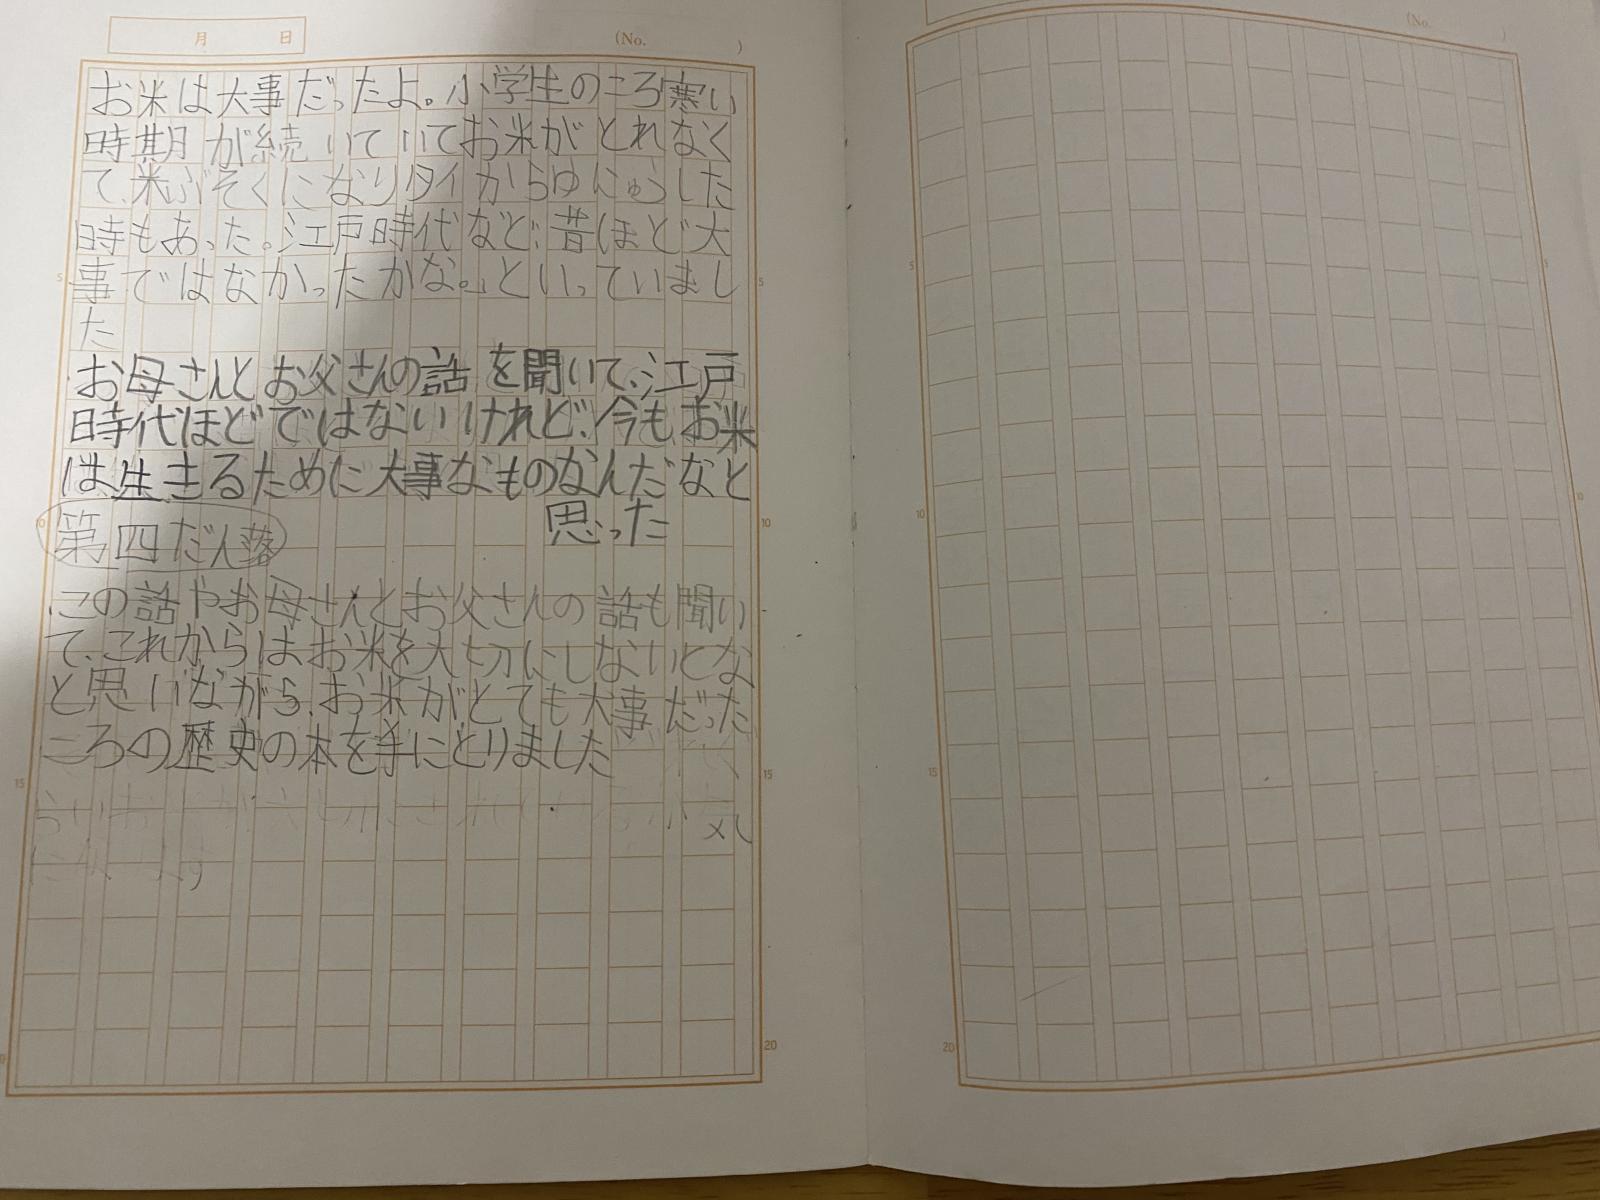 月 日
(No. )
お米は大事だったよ。小学生のころ寒い
時期が続いていてお米がとれなく
て、米ぶそくになりタイからゆにゅうした
時もあった。江戸時代など、昔ほど大
事ではなかったかな。」といっていまし
た
お母さんとお父さんの話を聞いて、江戸
時代ほどではないけれど、今もお米
は生きるために大事なものなんだなと
思った
第四だん落
この話やお母さんとお父さんの話も聞い
て、これからはお米を大切にしないとな
と思いながら、お米がとても大事だった
ころの歴史の本を手にとりました
気
5
10
15
20
(No. )
5
10
15
20